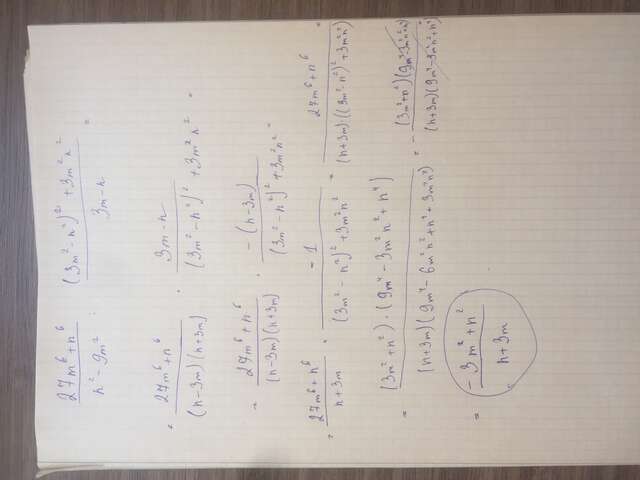 (27m⁶+n⁶)/(n²-9m²) : ((3m²-n²)²+3m²n²)/(3m-n) =
= (27m⁶+n⁶)/((n-3m)(n+3m)) · (3m-n)/((3m²-n²)²+3m²n²) =
= (27m⁶+n⁶)/((n-3m)(n+3m)) · (-(n-3m))/((3m²-n²)²+3m²n²) =
= (27m⁶+n⁶)/(n+3m) · (-1)/((3m²-n²)²+3m²n²) = (27m⁶+n⁶)/((n+3m)·((3m²-n²)²+3m²n²)) =
= ((3m²+n²)·(9m⁴-3m²n²+n⁴))/((n+3m)(9m⁴-6m²n²+n⁴+3m²n²)) = -((3m²+n²)(9m⁴-3m²n²+n⁴))/((n+3m)(9m⁴-3m²n²+n⁴))
= (-3m²+n²)/(n+3m)